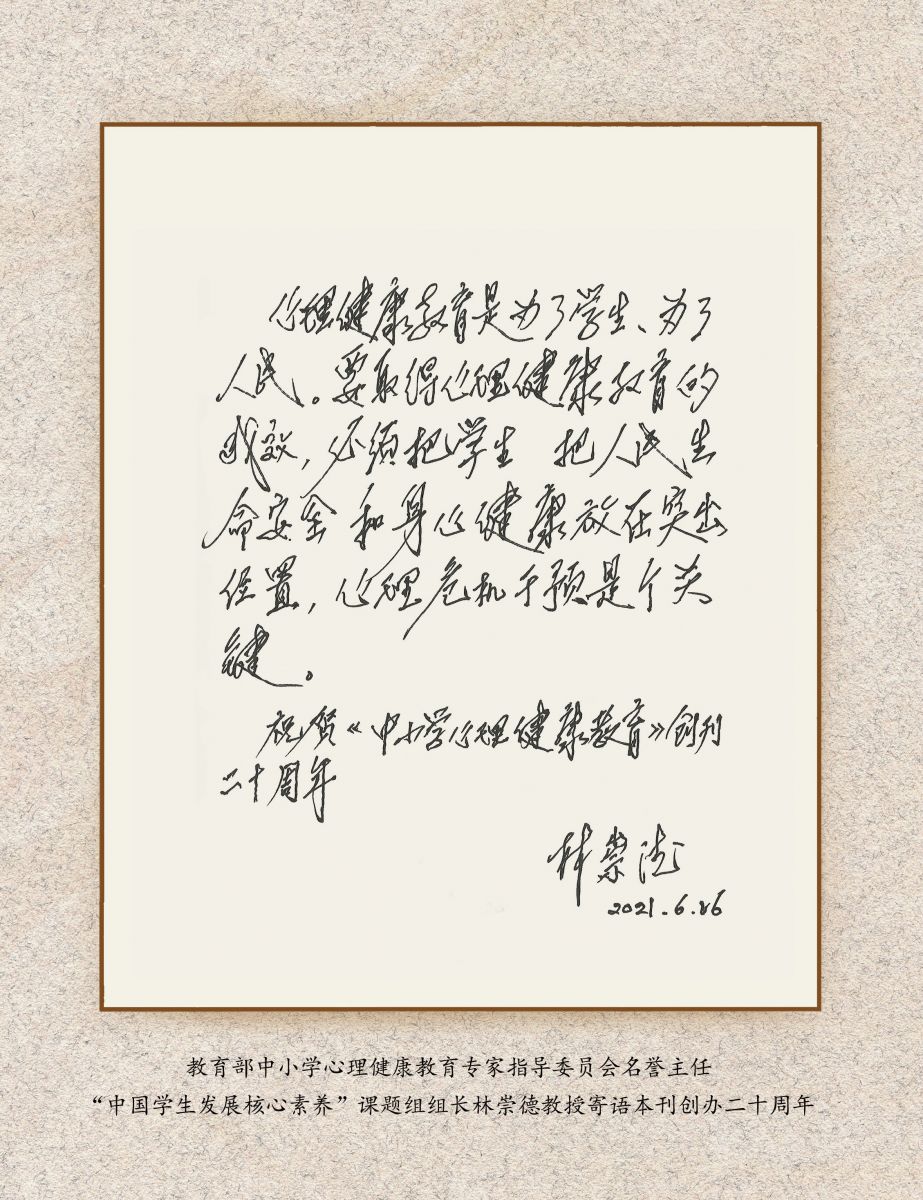 心理健康教育是为了学生、为了
人民。要取得心理健康教育的
成效，必须把学生 把人民生
命安全和身心健康放在突出
位置，心理危机干预是个关
键。
祝贺《中小学心理健康教育》创刊
二十周年
林崇德
2021.6.26
教育部中小学心理健康教育专家指导委员会名誉主任
“中国学生发展核心素养”课题组组长林崇德教授寄语本刊创办二十周年